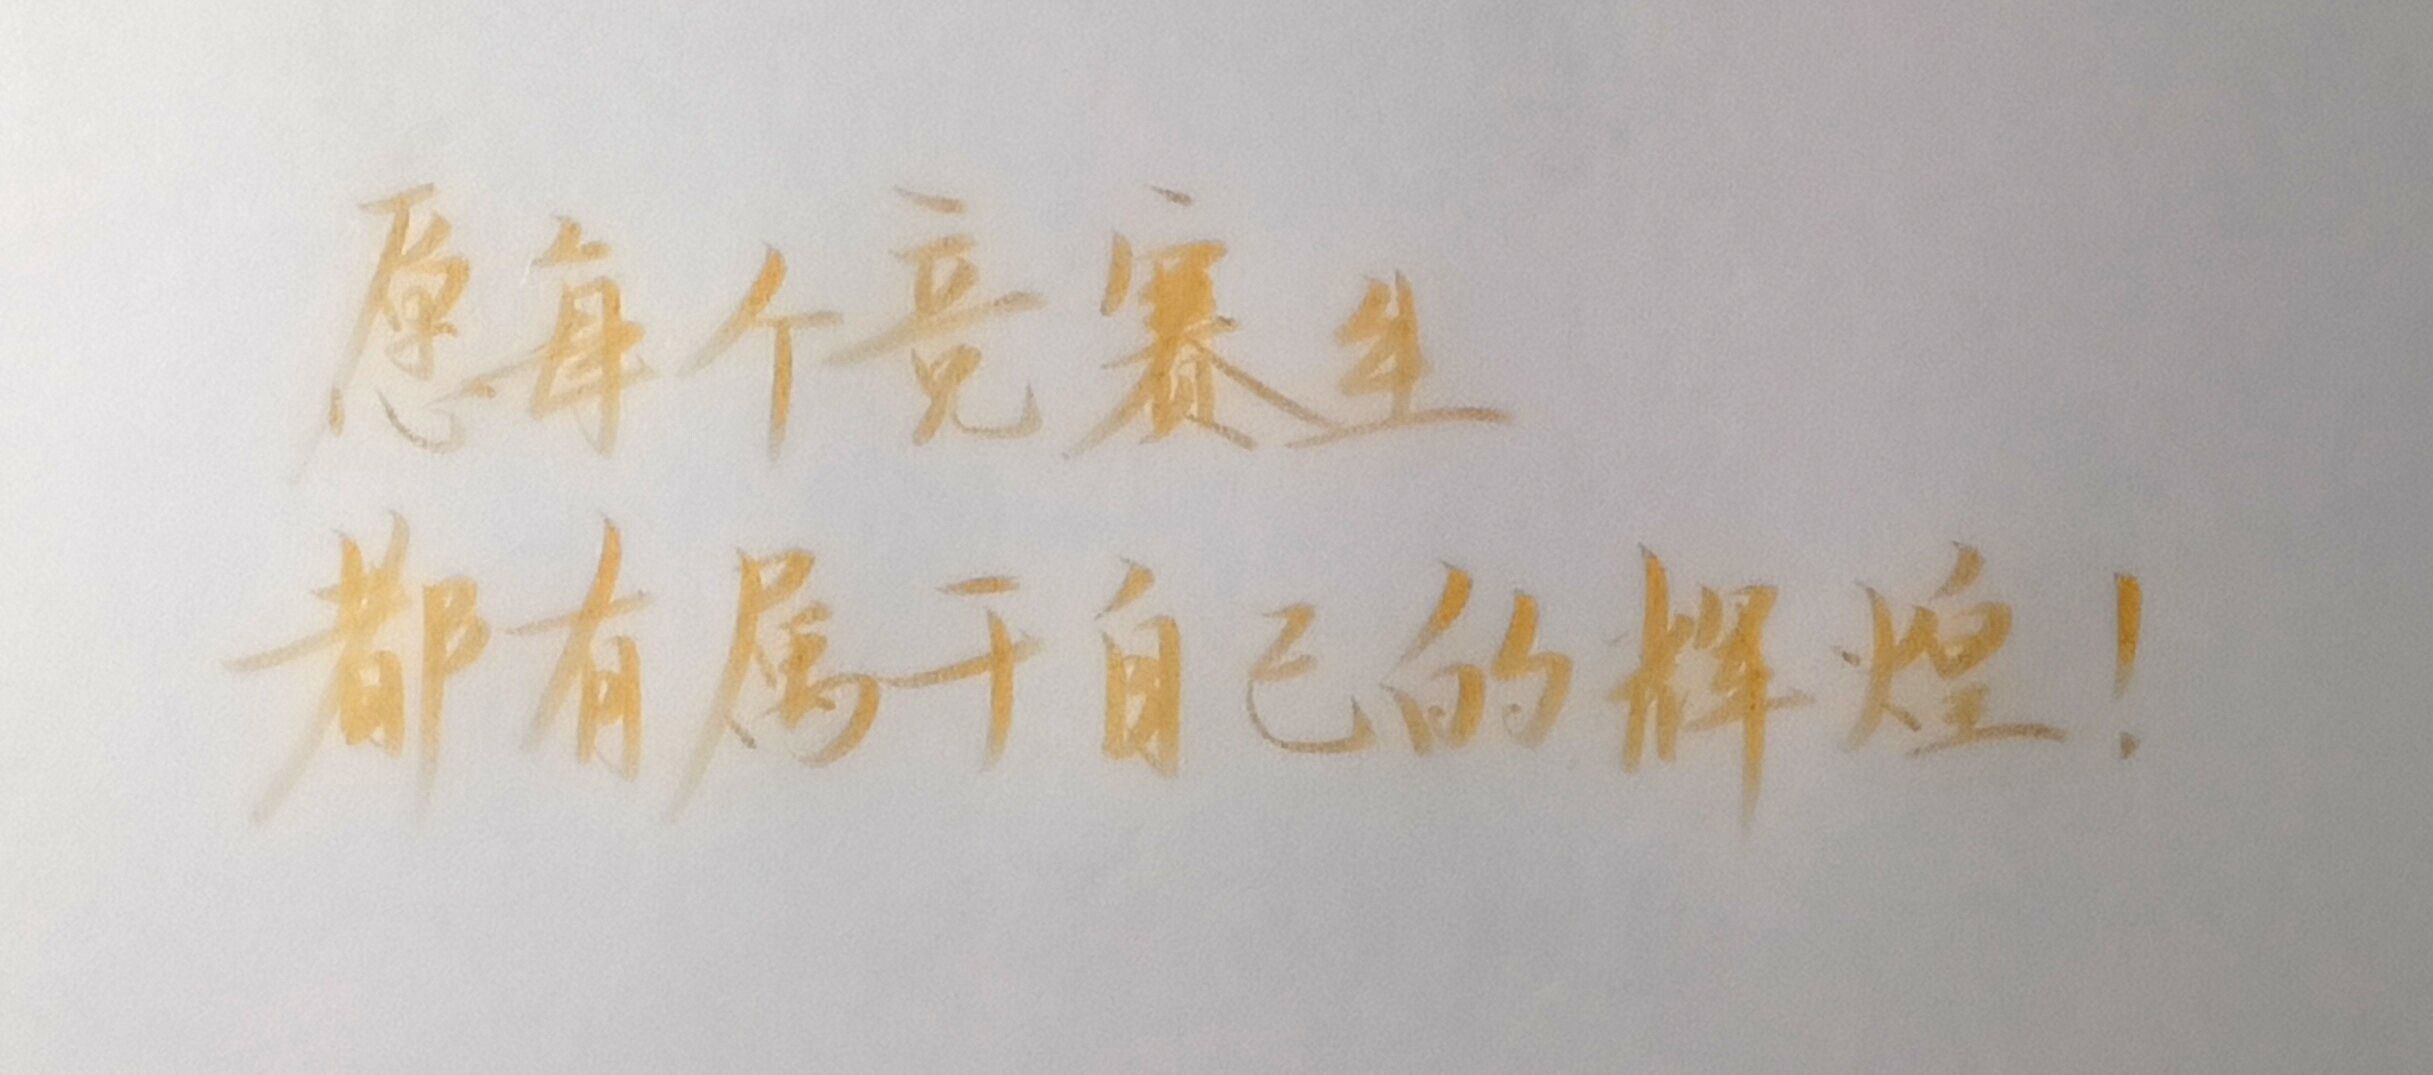 愿每个竞赛生
都有属于自己的辉煌！